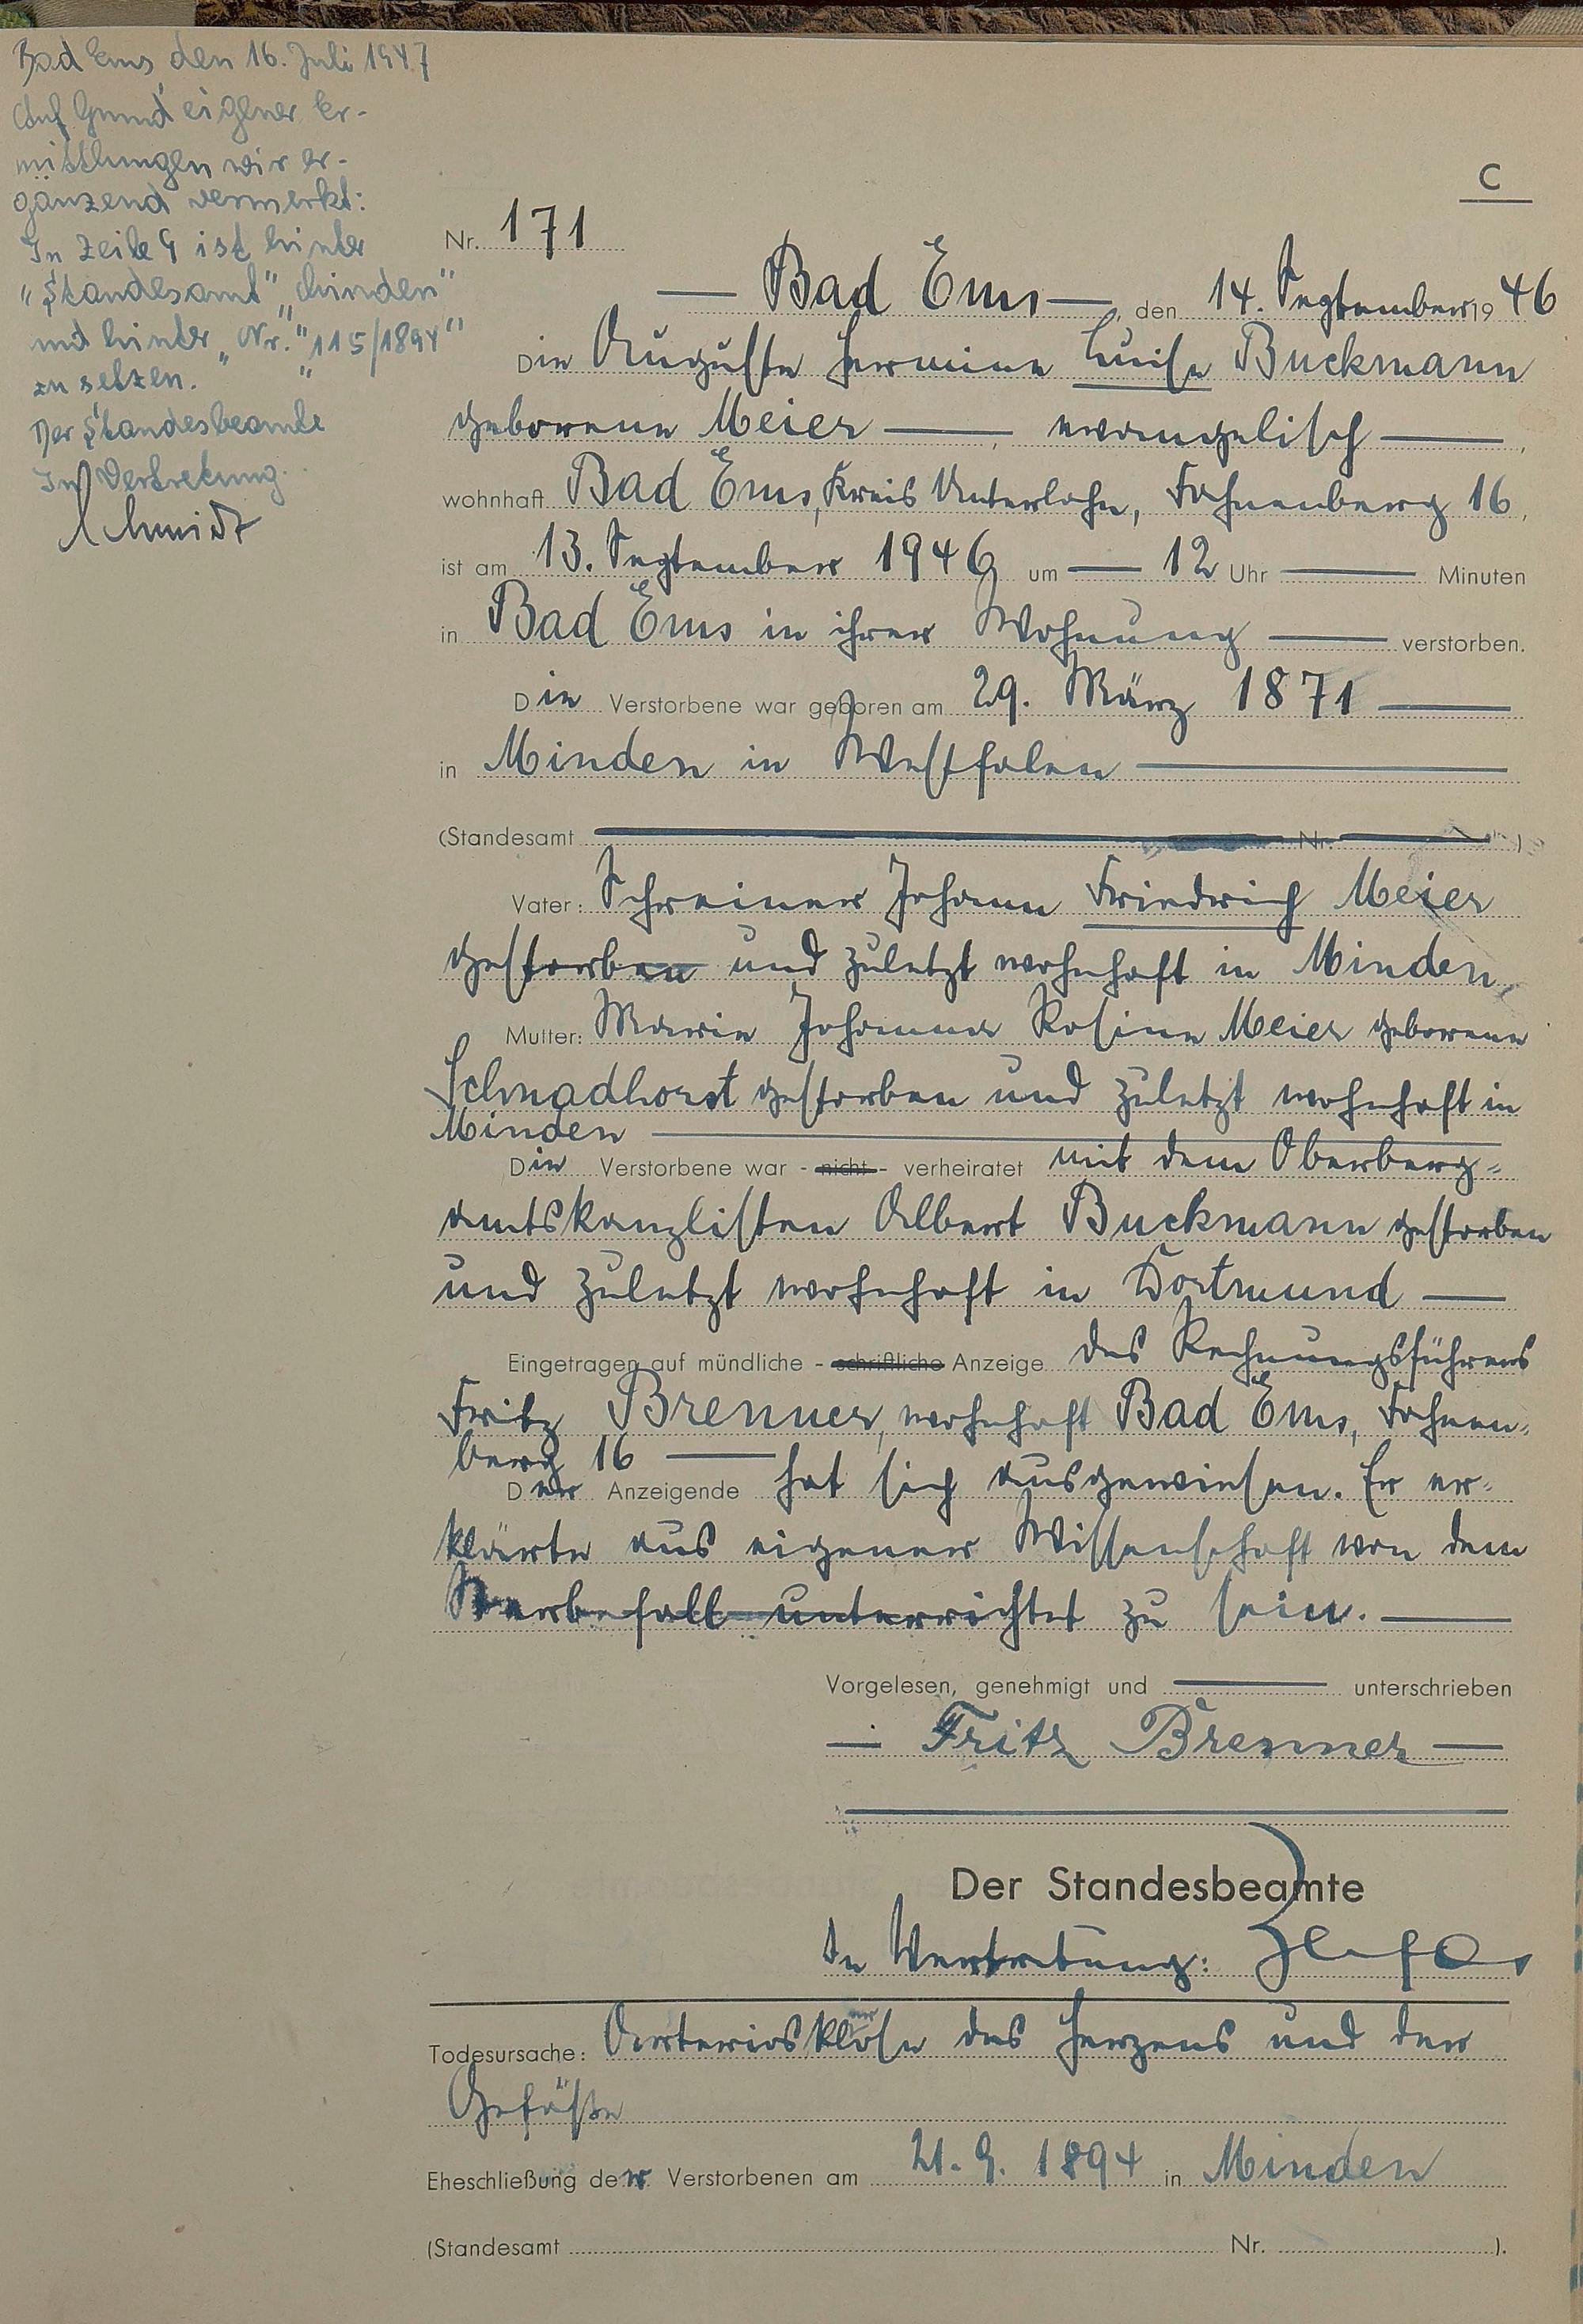 Bad Ems, den 16. Juli 1947
Auf Grund eigener Er-
mittlungen wir er-
gänzend vermerkt:
In Zeile 9 ist hinter
"Standesamt" "Minden"
und hinter "Nr." "115/1894"
zu setzen.
Der Standesbeamte
In Vertretung.
Schmidt
C
Nr. 171
— Bad Ems —, den 14. September 1946
Die Auguste Hermine Luise Buckmann
geborene Meier —, evangelisch —,
wohnhaft Bad Ems, Kreis Unterlahn, Fahnenberg 16,
ist am 13. September 1946 um — 12 Uhr — Minuten
in Bad Ems in ihrer Wohnung — verstorben.
Die Verstorbene war geboren am 29. März 1871 —
in Minden in Westfalen —
(Standesamt — Nr. — )
Vater: Schreiner Johann Friedrich Meier
gestorben und zuletzt wohnhaft in Minden,
Mutter: Marie Johanna Rosine Meier geborene
Schnadhorst gestorben und zuletzt wohnhaft in
Minden —
Die Verstorbene war - nicht - verheiratet mit dem Oberberg=
amtskanzlisten Albert Buckmann gestorben
und zuletzt wohnhaft in Dortmund —
Eingetragen auf mündliche - schriftliche Anzeige des Rechnungsführers
Fritz Brenner, wohnhaft Bad Ems, Fahnen=
berg 16 —
Der Anzeigende hat sich ausgewiesen. Er er=
klärte aus eigener Wissenschaft von dem
Sterbefall unterrichtet zu sein. —
Vorgelesen, genehmigt und — unterschrieben
— Fritz Brenner —
Der Standesbeamte
In Vertretung:
Todesursache: Arteriosklerose des Herzens und der
Gefäße
Eheschließung der Verstorbenen am 21. 9. 1894 in Minden
(Standesamt Nr. ).